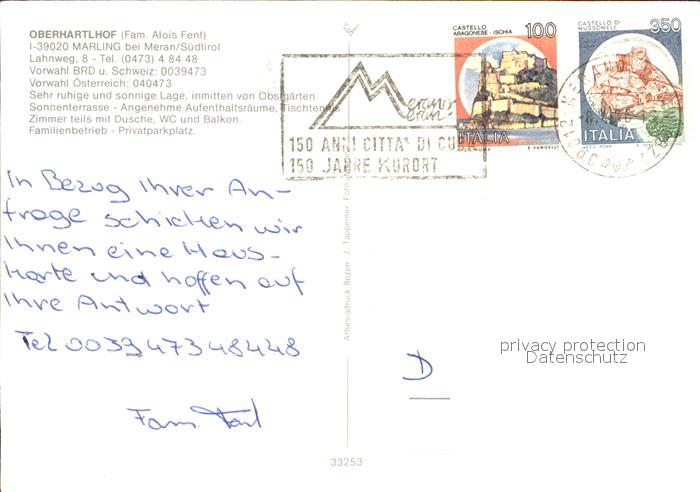 OBERHARTLHOF (Fam. Alois Fent)
I-39020 MARLING bei Meran/Südtirol
Lahnweg, 8 - Tel. (0473) 4 84 48
Vorwahl BRD u. Schweiz: 0039473
Vorwahl Österreich: 040473
Sehr ruhige und sonnige Lage, inmitten von Obstgärten.
Sonnenterrasse - Angenehme Aufenthaltsräume, Tischtennis
Zimmer teils mit Dusche, WC und Balkon.
Familienbetrieb - Privatparkplatz.
In Bezug Ihrer An-
frage schicken wir
Ihnen eine Haus-
karte und hoffen auf
Ihre Antwort
Tel 0039 473 48448
Fam.
Athesiadruck Bozen J. Tappeiner Foto
33253
CASTELLO
ARAGONESE - ISCHIA
100
ITALIA
E. VANGELLI
CASTELLO DI
MUSSOMELI
350
ITALIA
Merano
Meran
150 ANNI CITTA' DI CU
150 JAHRE KURORT
D
privacy protection
Datenschutz